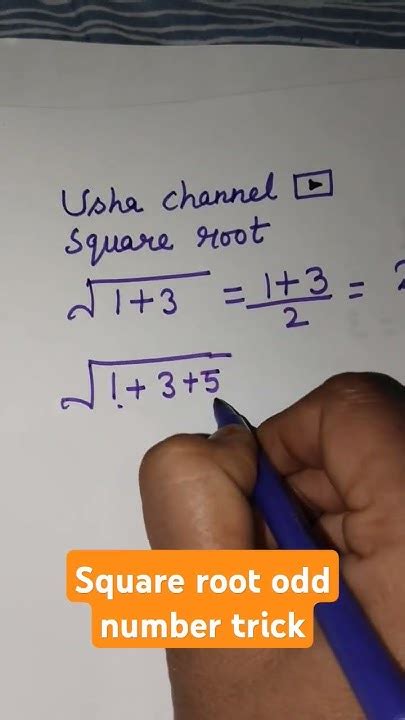 Usha channel
square root
√1+3 = 1+3/2 =
√1+3+5
Square root odd
number trick